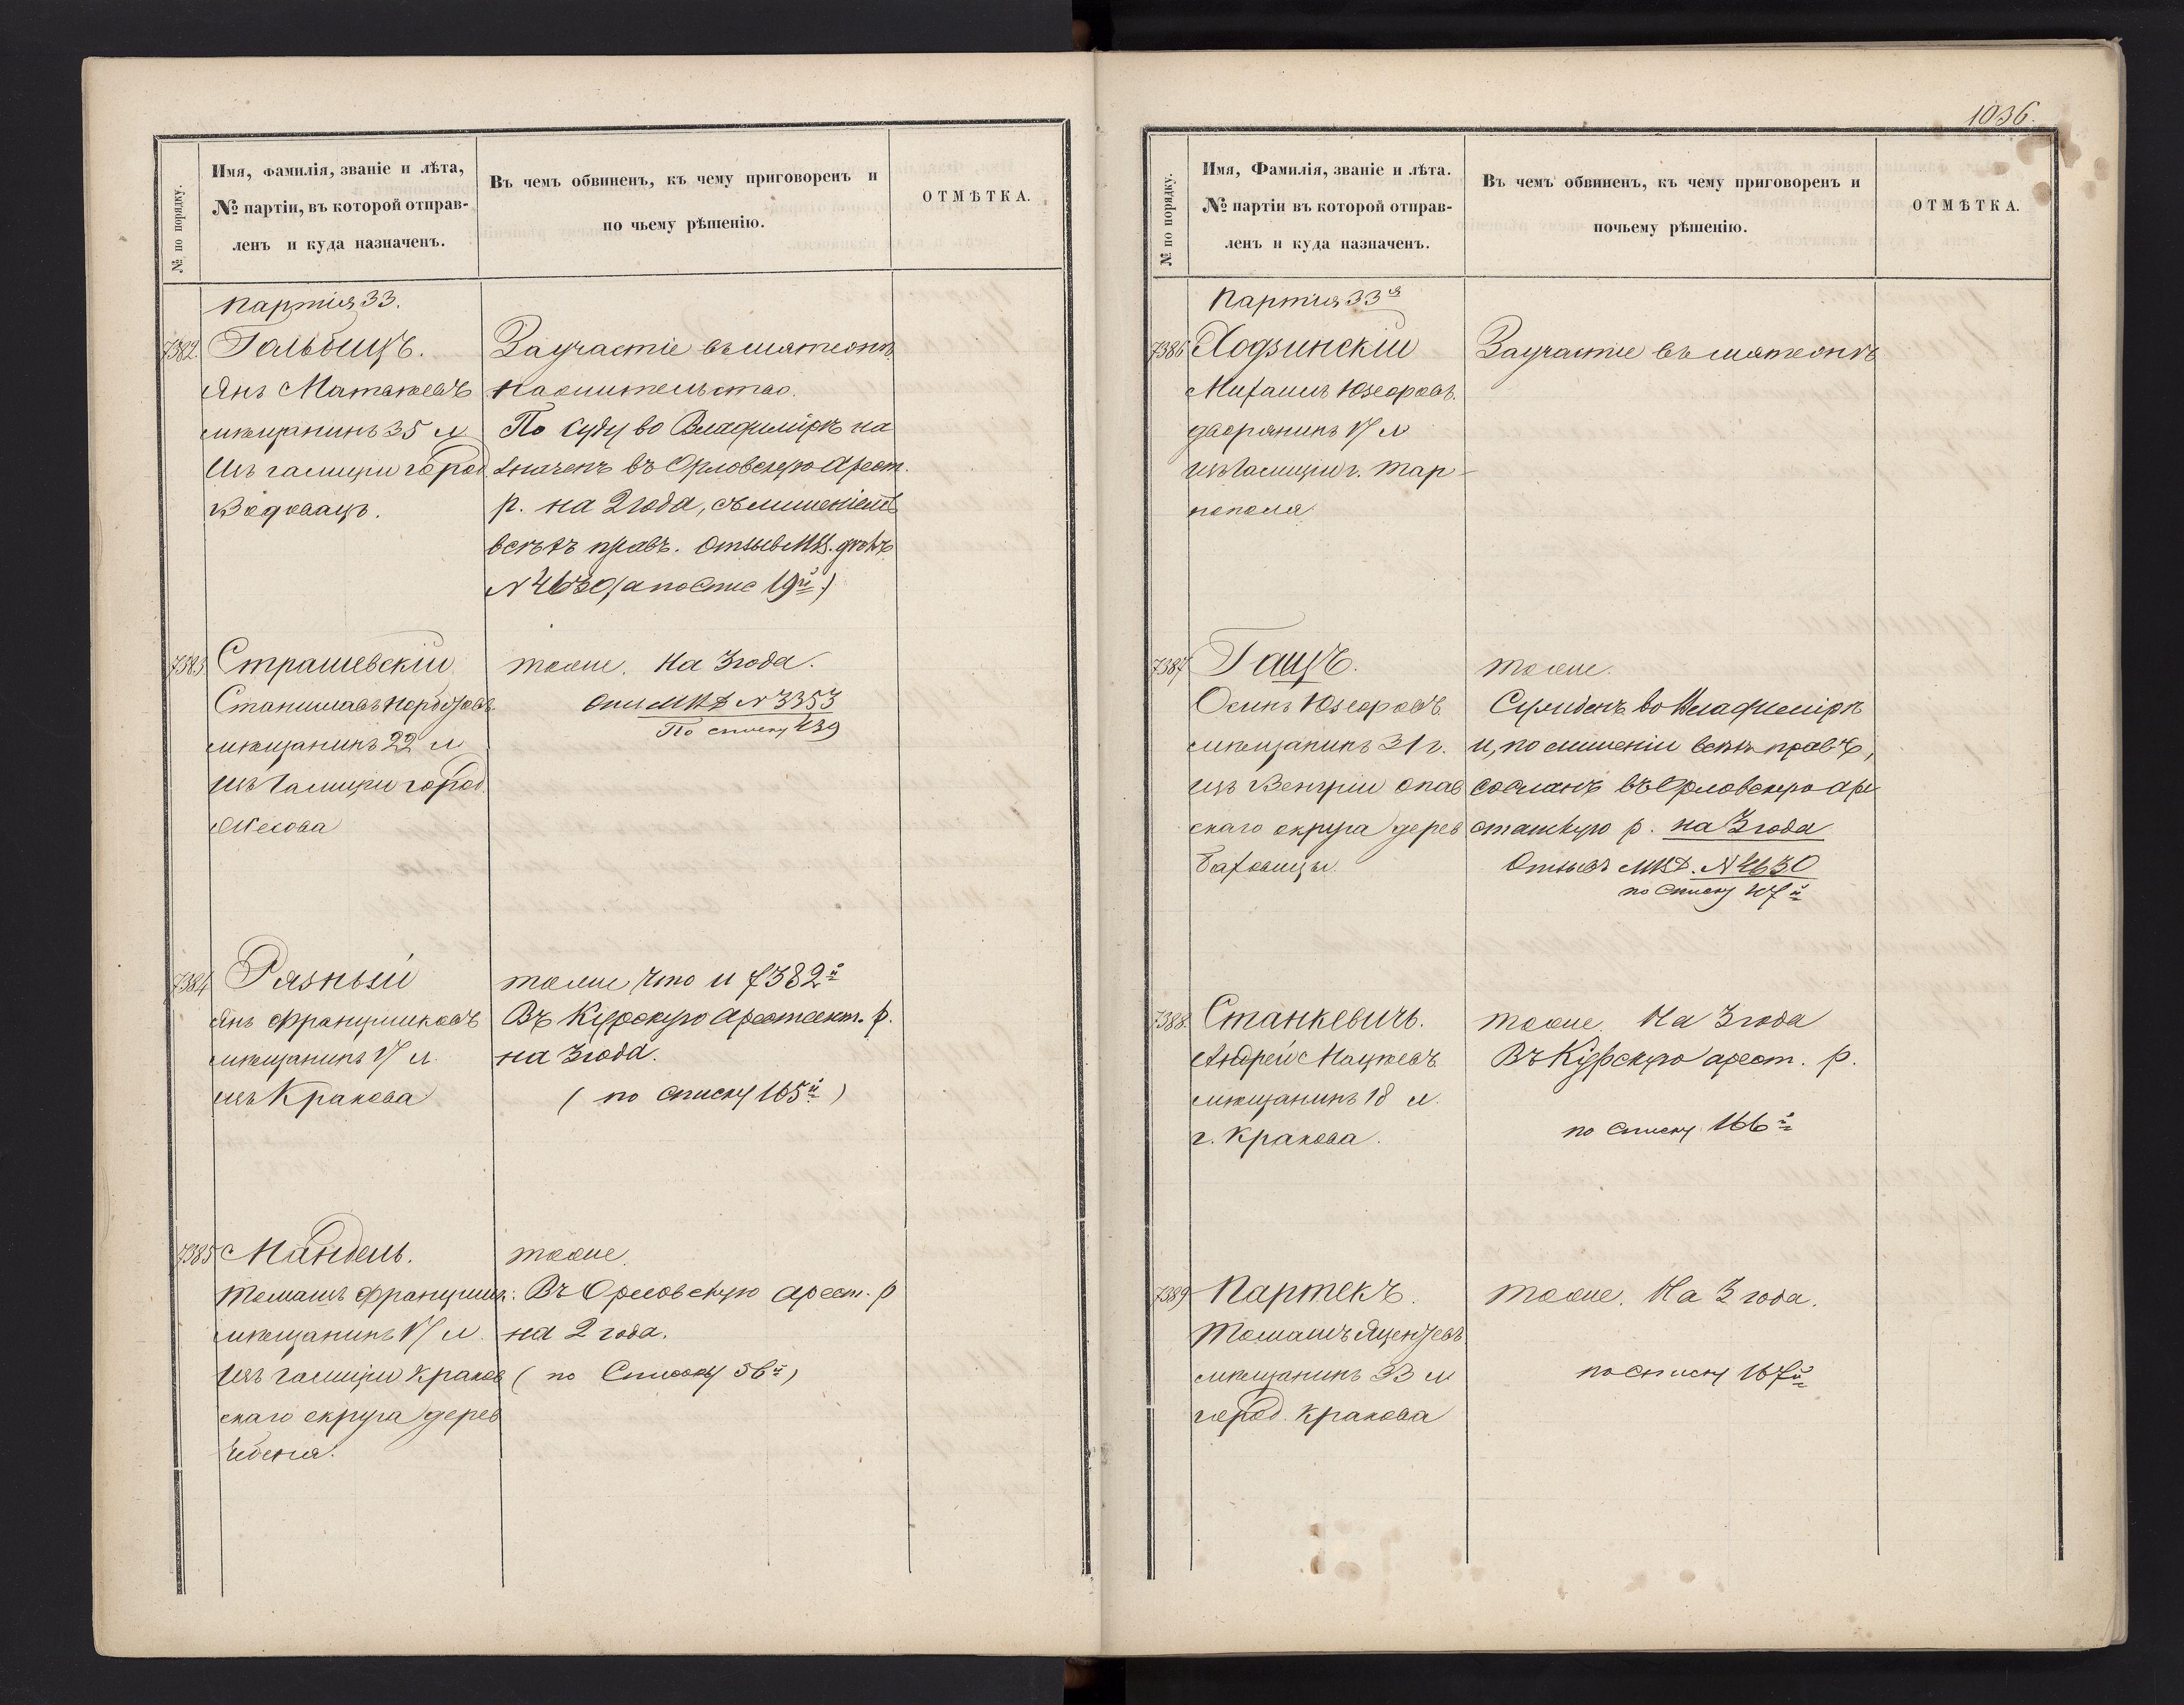 № по порядку.
Имя, фамилія, званіе и лѣта,
№ партіи, въ которой отправ-
ленъ и куда назначенъ.
Въ чемъ обвиненъ, къ чему приговоренъ и
по чьему рѣшенію.
ОТМѢТКА.
Партія 33.
7382. Гальбицъ.
Янъ Матвѣевъ
мѣщанинъ 35 л
Изъ Галиціи город
За участіе въ мятежѣ
По суду во Владимірѣ на
значенъ въ Орловскую Арест.
р. на 2 года, съ лишеніемъ
всѣхъ правъ. Отзывъ МВД.
N 4630 (а по Спис 19й)
7383. Страшевскій
Станиславъ
мѣщанинъ 22 л
Изъ Галиціи город
тоже. На 3 года.
Отз МВД N 3353
По списку 139
7384 Рязный
Янъ Францишковъ
мѣщанинъ 17 л.
изъ Кракова
тоже что и 7382й
Въ Курскую Арестант. р.
на 3 года.
(по списку 165й)
7385 Мандель.
Томашъ Францишк:
мѣщанинъ 17 л.
Изъ Галиціи Краков
скаго округа дерев
тоже.
Въ Орловскую арест. р
на 2 года.
(по Списку 56й)
1036.
№ по порядку.
Имя, Фамилія, званіе и лѣта.
№ партіи въ которой отправ-
ленъ и куда назначенъ.
Въ чемъ обвиненъ, къ чему приговоренъ и
почьему рѣшенію.
ОТМѢТКА.
Партія 33я
7386 Ходзинскій
Михаилъ Юзефовъ.
дворянинъ 17 л
изъ Галиціи г. Тар-
нополя
За участіе въ мятежѣ
7387 Гащъ.
Осипъ Юзефовъ.
мѣщанинъ 31 г.
изъ Венгріи
скаго округа дерев
тоже.
Сужденъ во Владимірѣ
и, по лишеніи всѣхъ правъ,
сосланъ въ Орловскую аре
стантскую р. на 3 года
Отзывъ МВД. N 4630
по Списку
7388. Станкевичъ.
Андрей
мѣщанинъ 18 л.
г. Кракова.
тоже. На 3 года
Въ Курскую арест. р.
по Списку 166й
7389 Партекъ.
Томашъ
мѣщанинъ 33 л
город. Кракова
тоже. На 3 года.
по списку 167й